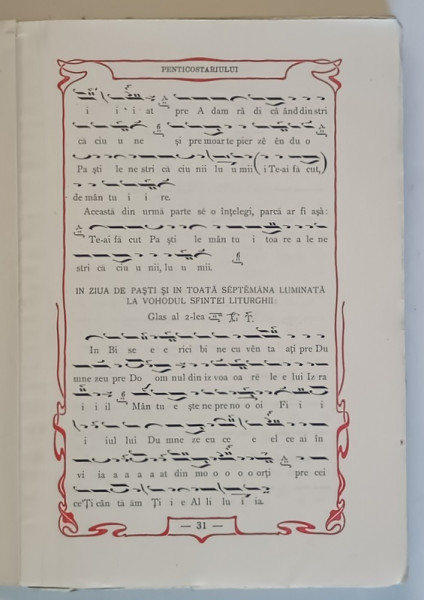 PENTICOSTARIULUI
i i i at pre A dam ră di că ând din stri
că ciu u ne și pre moar te pier zĕ ĕn du o
Pa ști le ne stri că ciu nii lu u mii (i Te-ai fă cut,)
de mân tu i i re.
Această din urmă parte sĕ o înțelegi, parcă ar fi așă:
Te-ai fă cut Pa ști le mân tu i toa re a le ne
stri că ciu u nii, lu u mii.
IN ZIUA DE PAȘTI ȘI IN TOATĂ SĔPTĔMÂNA LUMINATĂ
LA VOHODUL SFINTEI LITURGHII:
Glas al 2-lea
In Bi se e e rici bi ne cu vĕn ta ați pre Du
mne zeu pre Do om nul din iz voa oa rĕ le e lui Iz ra
i i il Mân tu e ște ne pre no o oi Fi i i
i iul lui Du mne ze eu ce e el ce ai în
vi ia a a a a at din mo o o o o orți pre cei
ce'Ți cân tă ăm Ți i e Al li lu i ia.
— 31 —